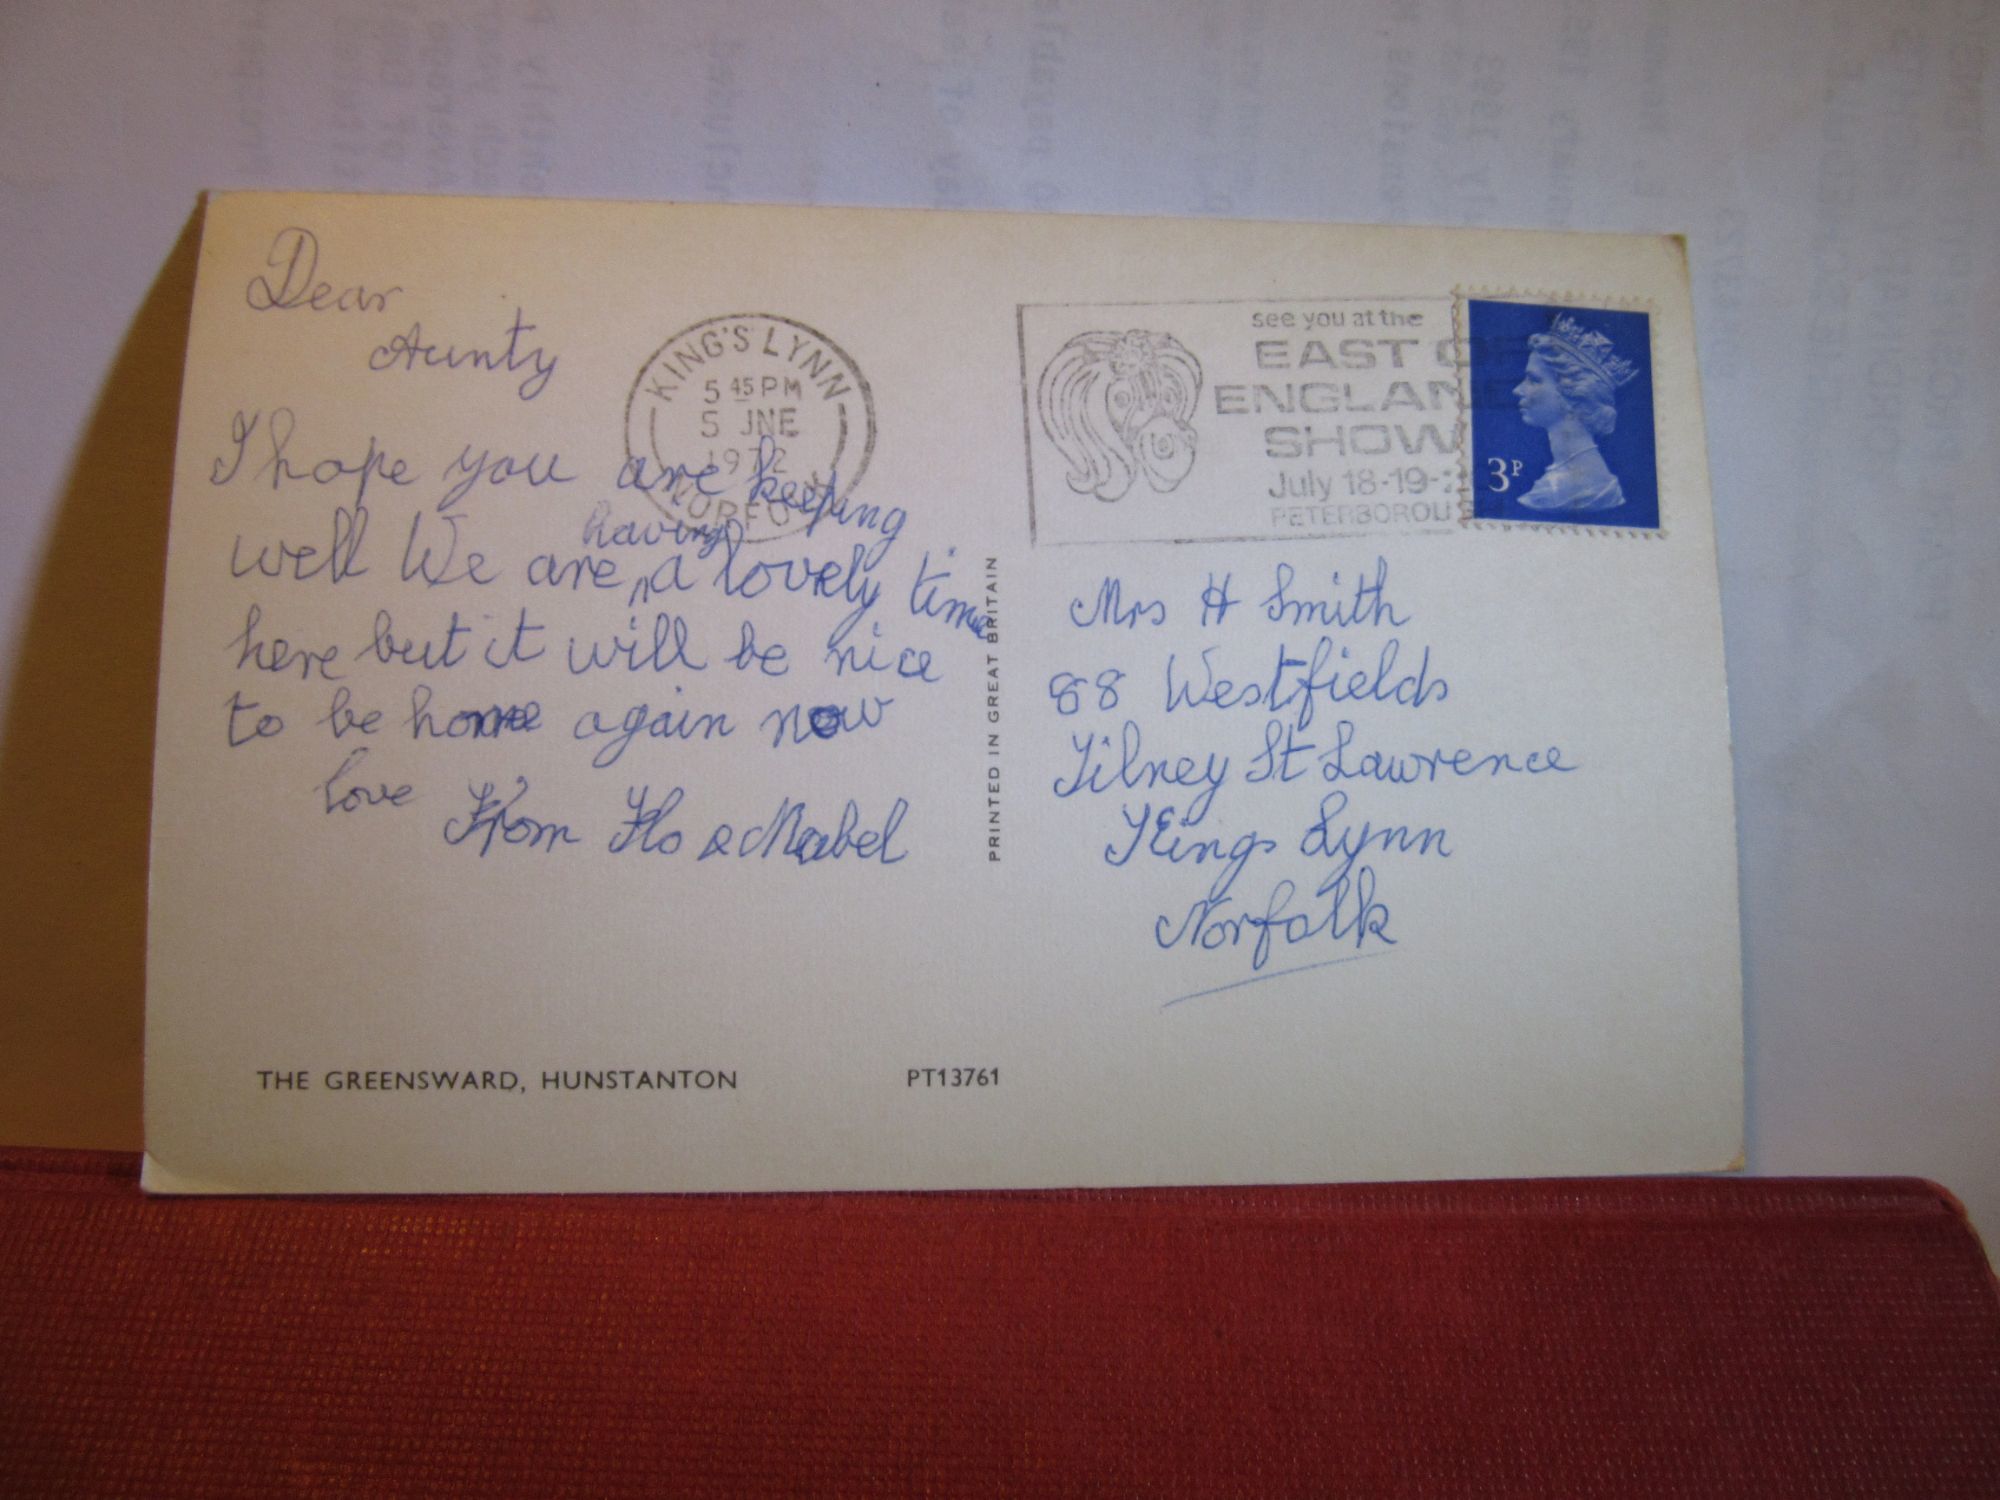 Dear
Aunty
I hope you are keeping
well We are having a lovely time
here but it will be nice
to be home again now
love
From Flo & Mabel
THE GREENSWARD, HUNSTANTON
PT13761
PRINTED IN GREAT BRITAIN
KING'S LYNN
5 45 PM
5 JNE
1972
NORFOLK
see you at the
EAST OF
ENGLAND
SHOW
July 18-19-
PETERBOROUGH
3P
Mrs H Smith
88 Westfields
Tilney St Lawrence
Kings Lynn
Norfolk